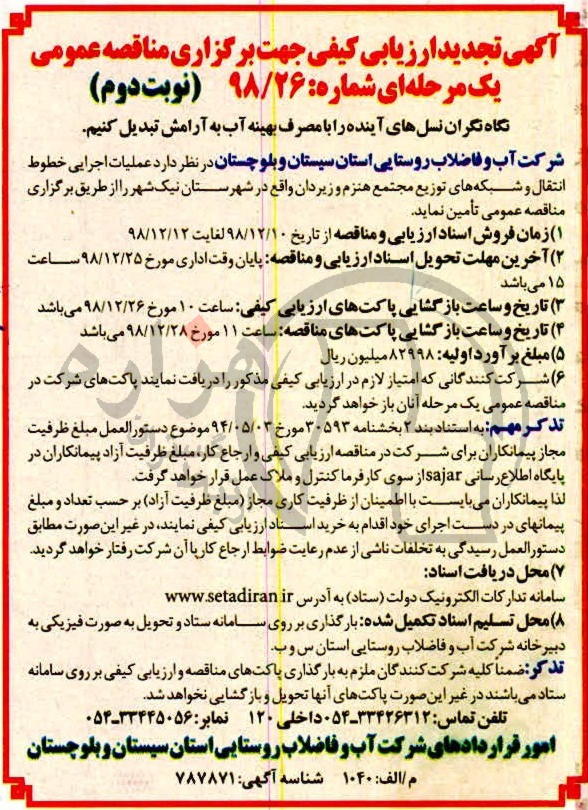 آگهی تجدید ارزیابی کیفی جهت برگزاری مناقصه عمومی
یک مرحله‌ای شماره: ۹۸/۲۶ (نوبت دوم)
نگاه نگران نسل های آینده را با مصرف بهینه آب به آرامش تبدیل کنیم.
شرکت آب و فاضلاب روستایی استان سیستان و بلوچستان در نظر دارد عملیات اجرایی خطوط
انتقال و شبکه‌های توزیع مجتمع هنزم و زیردان واقع در شهرستان نیک‌شهر را از طریق برگزاری
مناقصه عمومی تأمین نماید.
۱) زمان فروش اسناد ارزیابی و مناقصه از تاریخ ۹۸/۱۲/۱۰ لغایت ۹۸/۱۲/۱۲
۲) آخرین مهلت تحویل اسناد ارزیابی و مناقصه: پایان وقت اداری مورخ ۹۸/۱۲/۲۵ ساعت
۱۵ می‌باشد
۳) تاریخ و ساعت بازگشایی پاکت‌های ارزیابی کیفی: ساعت ۱۰ مورخ ۹۸/۱۲/۲۶ می‌باشد
۴) تاریخ و ساعت بازگشایی پاکت‌های مناقصه: ساعت ۱۱ مورخ ۹۸/۱۲/۲۸ می‌باشد
۵) مبلغ برآورد اولیه: ۸۲۹۹۸ میلیون ریال
۶) شرکت‌کنندگانی که امتیاز لازم در ارزیابی کیفی مذکور را دریافت نمایند پاکت‌های شرکت در
مناقصه عمومی یک مرحله آنان باز خواهد گردید.
تذکر مهم: به استناد بند ۲ بخشنامه ۳۰۵۹۳ مورخ ۹۴/۰۵/۰۳ موضوع دستورالعمل مبلغ ظرفیت
مجاز پیمانکاران برای شرکت در مناقصه ارزیابی کیفی و ارجاع کار، مبلغ ظرفیت آزاد پیمانکاران در
پایگاه اطلاع رسانی sajar از سوی کارفرما کنترل و ملاک عمل قرار خواهد گرفت.
لذا پیمانکاران می‌بایست با اطمینان از ظرفیت کاری مجاز (مبلغ ظرفیت آزاد) بر حسب تعداد و مبلغ
پیمانهای در دست اجرای خود اقدام به خرید اسناد ارزیابی کیفی نمایند، در غیر این صورت مطابق
دستورالعمل رسیدگی به تخلفات ناشی از عدم رعایت ضوابط ارجاع کار با آن شرکت رفتار خواهد گردید.
۷) محل دریافت اسناد:
سامانه تدارکات الکترونیک دولت (ستاد) به آدرس www.setadiran.ir
۸) محل تسلیم اسناد تکمیل شده: بارگذاری بر روی سامانه ستاد و تحویل به صورت فیزیکی به
دبیرخانه شرکت آب و فاضلاب روستایی استان س و ب.
تذکر: ضمناً کلیه شرکت‌کنندگان ملزم به بارگذاری پاکت‌های مناقصه و ارزیابی کیفی بر روی سامانه
ستاد می‌باشند در غیر این صورت پاکت‌های آنها تحویل و بازگشایی نخواهد شد.
تلفن تماس: ۳۳۴۲۶۳۱۲-۰۵۴ داخلی ۱۲۰ نمابر: ۳۳۴۴۵۰۵۶-۰۵۴
امور قراردادهای شرکت آب و فاضلاب روستایی استان سیستان و بلوچستان
م/الف: ۱۰۴۰ شناسه آگهی: ۷۸۷۸۷۱
هزاره